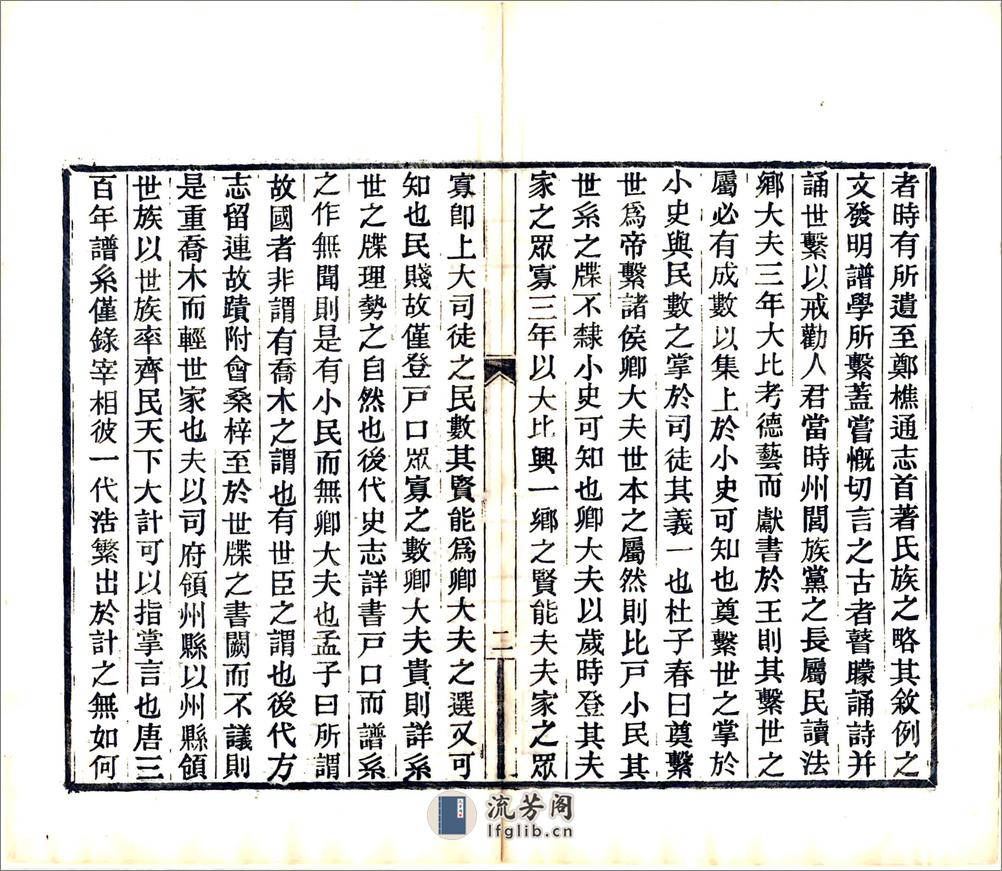 者時有所遺至鄭樵通志首著氏族之略其敘例之
文發明譜學所繫蓋嘗慨切言之古者瞽矇誦詩并
誦世繫以戒勸人君當時州閭族黨之長屬民讀法
鄉大夫三年大比考德藝而獻書於王則其繫世之
屬必有成數以集上於小史可知也奠繫世之掌於
小史與民數之掌於司徒其義一也杜子春曰奠繫
世爲帝繫諸侯卿大夫世本之屬然則比戸小民其
世系之牒不隸小史可知也卿大夫以歲時登其夫
家之眾寡三年以大比興一鄉之賢能夫夫家之眾
二
寡卽上大司徒之民數其賢能爲卿大夫之選又可
知也民賤故僅登戸口眾寡之數卿大夫貴則詳系
世之牒理勢之自然也後代史志詳書戸口而譜系
之作無聞則是有小民而無卿大夫也孟子曰所謂
故國者非謂有喬木之謂也有世臣之謂也後代方
志留連故蹟附會桑梓至於世牒之書闕而不議則
是重喬木而輕世家也夫以司府領州縣以州縣領
世族以世族率齊民天下大計可以指掌言也唐三
百年譜系僅錄宰相彼一代浩繁出於計之無如何
流芳阁
lfglib.cn